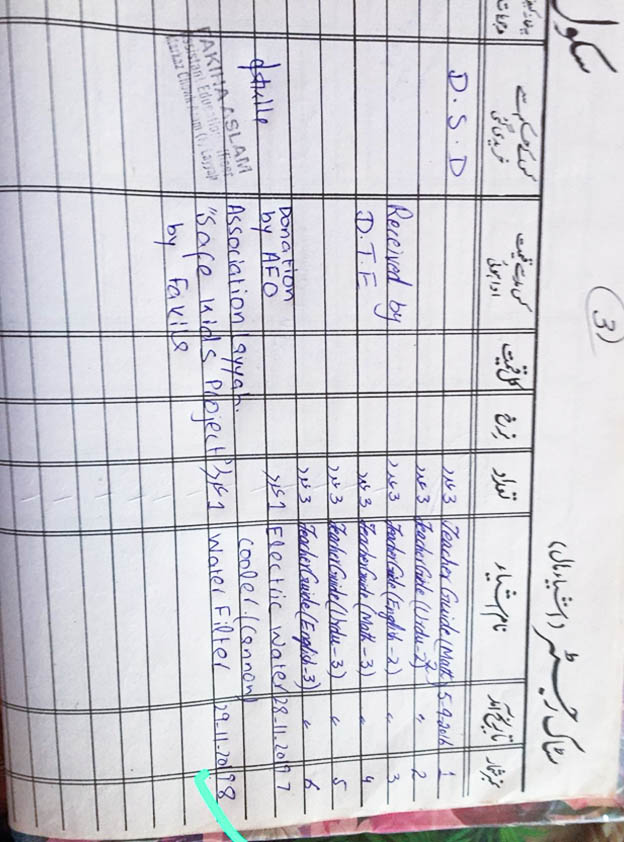 سکول
(3)
سٹاک رجسٹر (اشیاء مال)
نمبر شمار تاریخ آمد نام اشیاء تعداد نرخ کل قیمت
1 5-9-2016 Teacher Guide (Math 3 عدد D.S.D
2 " Teacher Guide (Urdu-2) 3 عدد
3 " Teacher Guide (English-2) 3 عدد Received by
4 " Teacher Guide (Math-3) 3 عدد D.T.E
5 " Teacher Guide (Urdu-3) 3 عدد
6 " Teacher Guide (English-3) 3 عدد
7 28-11-2019 Electric Water 1 عدد Donation by AEO
Cooler (Cannon) Association Layyah.
8 29-11-2019 Water Filter 1 عدد "Safe Kids Project"
by
ASLAM
Assistant Education Officer
Layyah